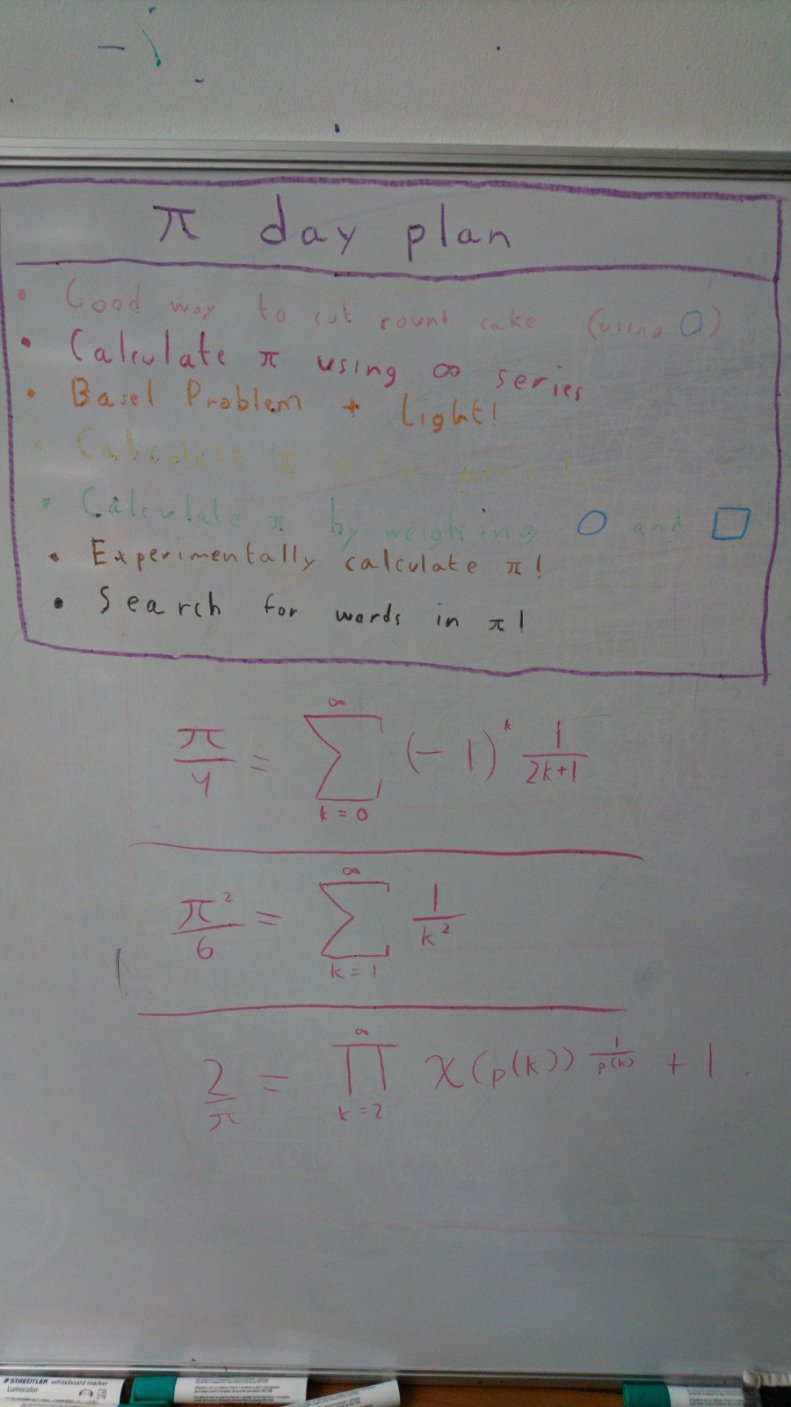 π day plan
• Good way to cut round cake (using O)
• Calculate π using ∞ series
• Basel Problem + Light!
• Calculate π with pendulum
• Calculate π by weighing O and □
• Experimentally calculate π!
• Search for words in π!
π/4 = ∑_{k=0}^{∞} (-1)^k 1/(2k+1)
π²/6 = ∑_{k=1}^{∞} 1/k²
2/π = ∏_{k=2}^{∞} χ(p(k))^{1/p(k)} + 1
STAEDTLER whiteboard marker
Lumocolor